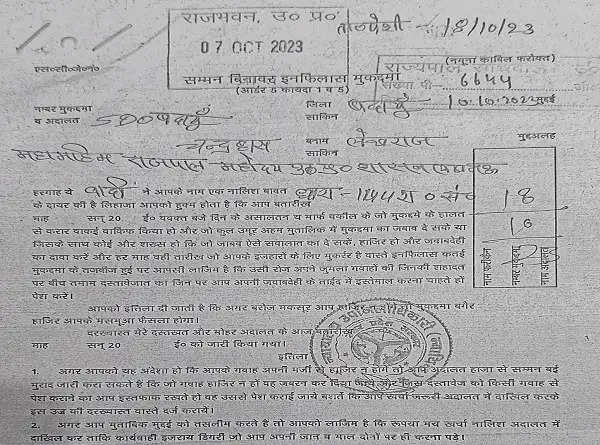 राजभवन, उ० प्र०
ता०पेशी - 18/10/23
07 OCT 2023
(नमूना काबिल फरोख्त)
राज्यपाल
एस०सी०जे०नं०
सम्मन बिनावर इनफिलास मुकदमा
संख्या पी 6644
(आर्डर 5 कायदा 1 व 5)
नम्बर मुकदमा
व अदालत SDO बदायूँ
जिला बदायूँ
साकिन
मुद्दई
चन्द्रहास बनाम लेखराज
साकिन
मुद्दाअलह
महामहिम राज्यपाल महोदय उ०प्र० शासन लखनऊ
हरगाह ये वादी ने आपके नाम एक नालिश बाबत धारा - 144
के दायर की है लिहाजा आपको हुक्म होता है कि आप बतारीख 18
माह सन् 20 ई० वक्त बजे दिन के असालतन या मार्फ वकील के जो मुकदमे के हालत
से करार वाकई वाकिफ किया हो और जो कुल अमूर अहम मुतालिक ये मुकदमा का जबाब दे सके या 10
जिसके साथ कोई और शख्स हो कि जो जाबब ऐसे सवालात का दे सके, हाजिर हो और जवाबदेही
का दावा करें और हर माह वही तारीख जो आपके इजहारों के लिए मुकर्रर है वास्ते इनफिलास कतई
मुकदमा के तजबीज हुई पर आपसी लाजिम है कि उसी रोज अपने जुमला गवाहों की जिनकी शहादत
पर बीच तमाम दस्तावेजात का जिन पर आप अपनी जवाबदेही के ताईद में इस्तेमाल करना चाहते हो
पेश करें।
नाम फरीकैन
नम्बर मुकदमा
नाम अदालत
आपको इत्तिला दी जाती है कि अगर बरोज मजकूर आप हाजिर मुकदमा बगैर
हाजिर आपके मसमूआ फैसला होगा।
दरख्वास्त मेरे दस्तखत और मोहर अदालत के आज बतारीख
माह सन् 20 ई० को जारी किया गया।
इत्तिला
1. अगर आपको यह अंदेशा हो कि आपके गवाह अपनी मर्जी से हाजिर न होंगे तो आप अदालत हाजा से सम्मन बई
मुराद जारी करा सकते है कि जो गवाह हाजिर न हो वह जबरन कर दिया जाये और जिस दस्तावेज को किसी गवाह से
पेश कराने का आप इस्तहाक रखते हो वह उससे पेश कराई जाये बशर्ते कि आप खर्चा जरूरी अदालत में दाखिल करके
इस उज्र की दरख्वास्त वास्ते दर्ज करायें।
2. अगर आप मुताबिक मुद्दई को तसलीम करते है तो आपको लाजिम है कि रूपया मय खर्चा नालिश अदालत में
दाखिल कर ताकि कार्यवाही इजराय डिगरी जो आप अपनी जान व माल दोनों पर ही करना पड़े।